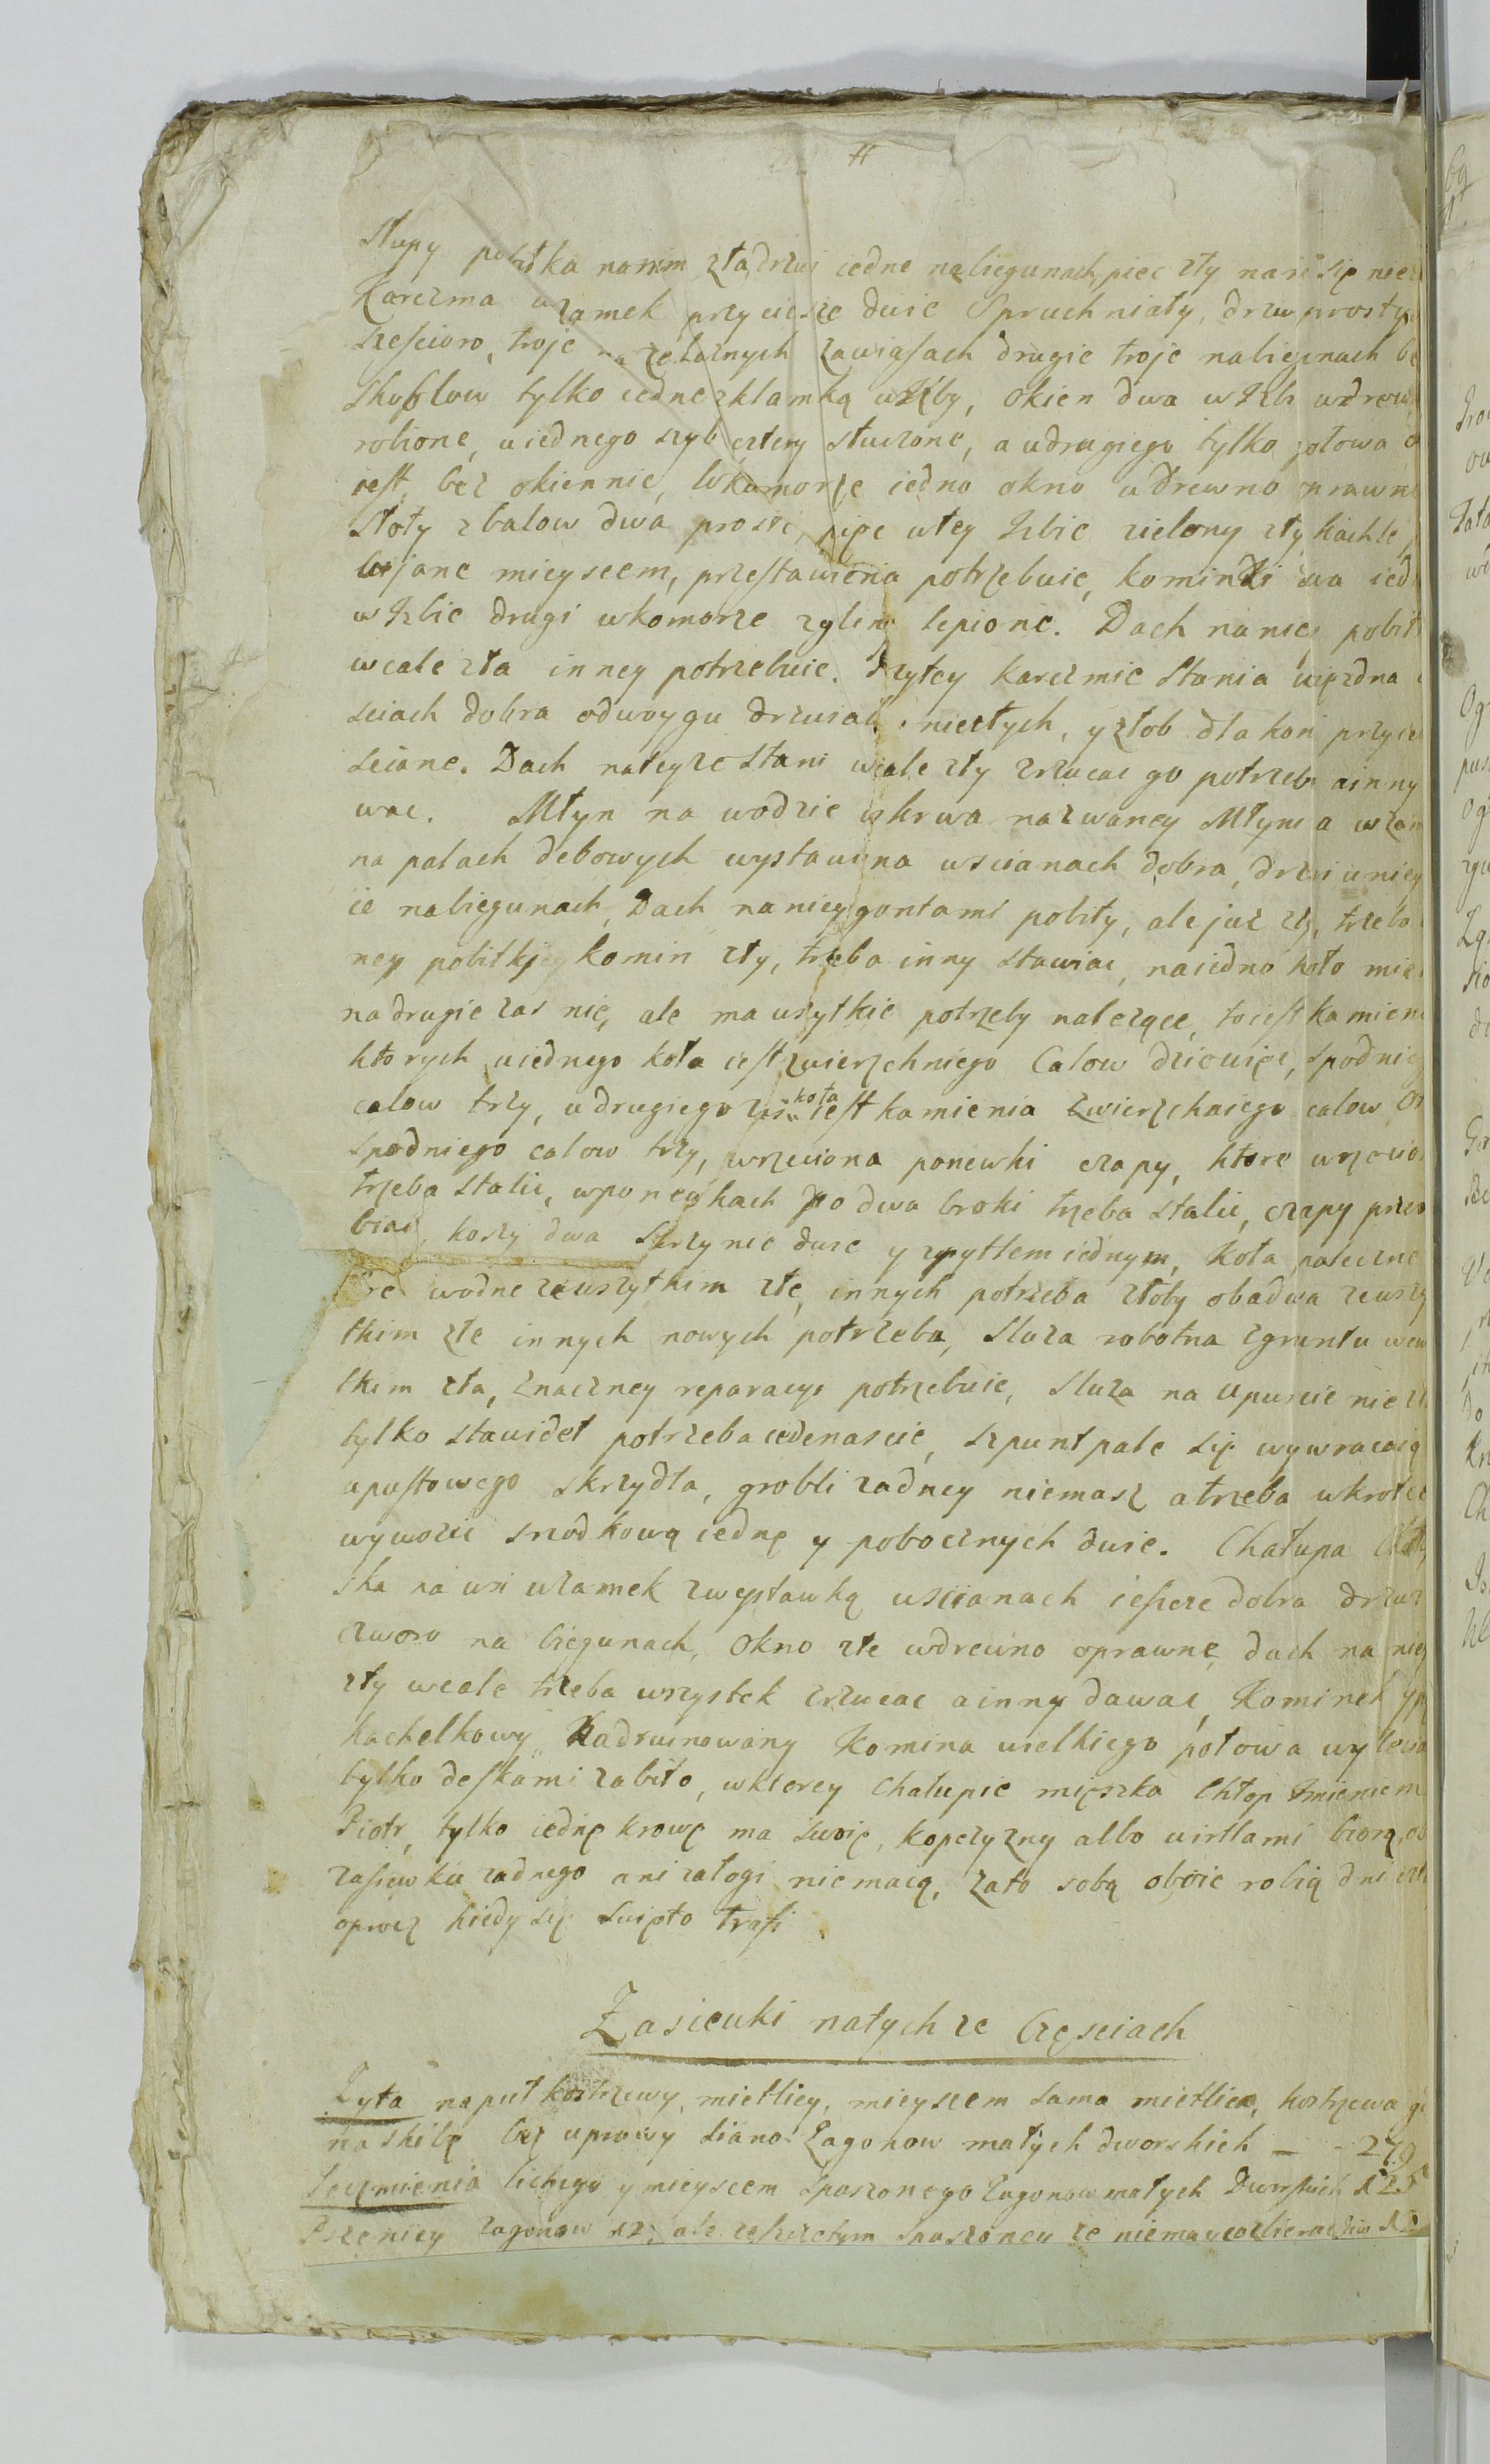 Słupy pobitka na nim zła, drzwi iedne na biegunach, piec zły na nic się nie
Karczma w zamek przyciesie dwie Spruchniały, drzwi prosty
Sześcioro, troie na żelaznych zawiasach drugie troie na biegunach be
skoblow tylko iedne z klamką u Izby, okien dwa w Izbi w drewn
robione, u iednego szyb cztery stłuczone, a u drugiego tylko połowa
iest, bez okiennic, w komorze iedno okno w drewno oprawn
Stoły z balow dwa proste, piec w tey Izbie zielony zły kachle
miejscem, przestawienia potrzebuie, kominki dwa ied
w Izbie drugi w komorze z gliny lepione. Dach na niey pobit
wcale zła inney potrzebuie. Przytey karczmie Stania wiezdna
sciach dobra o dwoygu drzwiach niezłych, y złob dla koni przy ie
scianc. Dach na teyze Stani wcale zły zrzucac go potrzeba a inny
wac. Młyn na wodzie nazwaney Młynia w zam
na palach debowych wystawiona w scianach dobra, drzwi u niey
ie na biegunach, Dach na niey gontami pobity, ale juz zły, trzeba
ney pobitki, komin zły, trzeba inny stawiac, na iedno koło mie
na drugie zas nie, ale ma wszytkie potrzeby nalezące, to iest kamien
ktorych u iednego koła iest zwierzchniego Calow dziewięc, spodnie
calow trzy, u drugiego zas koła iest kamienia zwierzchniego calow os
spodniego calow trzy, wrzeciona ponewki czapy, ktore wrzecio
trzeba stalic, w ponewkach po dwa broki trzeba stalic, czapy przer
biac, koszy dwa skrzynie dwie y z pytlem iednym, koła paleczne
re wodne ze wszytkim złe, innych potrzeba złoby obadwa ze wszy
tkim złe innych nowych potrzeba, Sluza robotna z gruntu wcw
tkim zła, znaczney reparacyi potrzebuie, Sluza na upuscie nie zł
tylko stawideł potrzeba iedenascie, szpunt pale się wywracaią
upustowego skrzydła, grobli zadney niemasz a trzeba wkrotce
wywozic srzodkową iednę y pobocznych dwie. Chałupa
ska na wsi w zamek z wystawką w scianach ieszcze dobra drzwi
czworo na biegunach, okno złe w drewno oprawne dach na niey
zły wcale trzeba wszystek zrzucac a inny dawac, Kominek y p
kachelkowy Nadruinowany Komina wielkiego połowa wylewa
tylko deskami zabito, w ktorey Chałupie mięszka Chłop Imieniem
Piotr, tylko iednę krowę ma swoię, kopczyzny albo wirtlami biorą, o
zasiewku zadnego ani załogi nie maią, zato sobą oboie robią dni czt
oprocz kiedy się Swięto trafi
Zasiewki na tych ze Częsciach
Zyta na puł kostrzewy, mietlicy, mieyscem sama mietlica, kostrzewa g
na skibę bez uprawy siano. Zagonow małych dworskich — 279
Ięczmienia lichego y mieyscem Spaszonego Zagonow małych Dworskich 125
Pszenicy zagonow 12, ale ze szczętym Spaszoney ze niemasz co zbierac